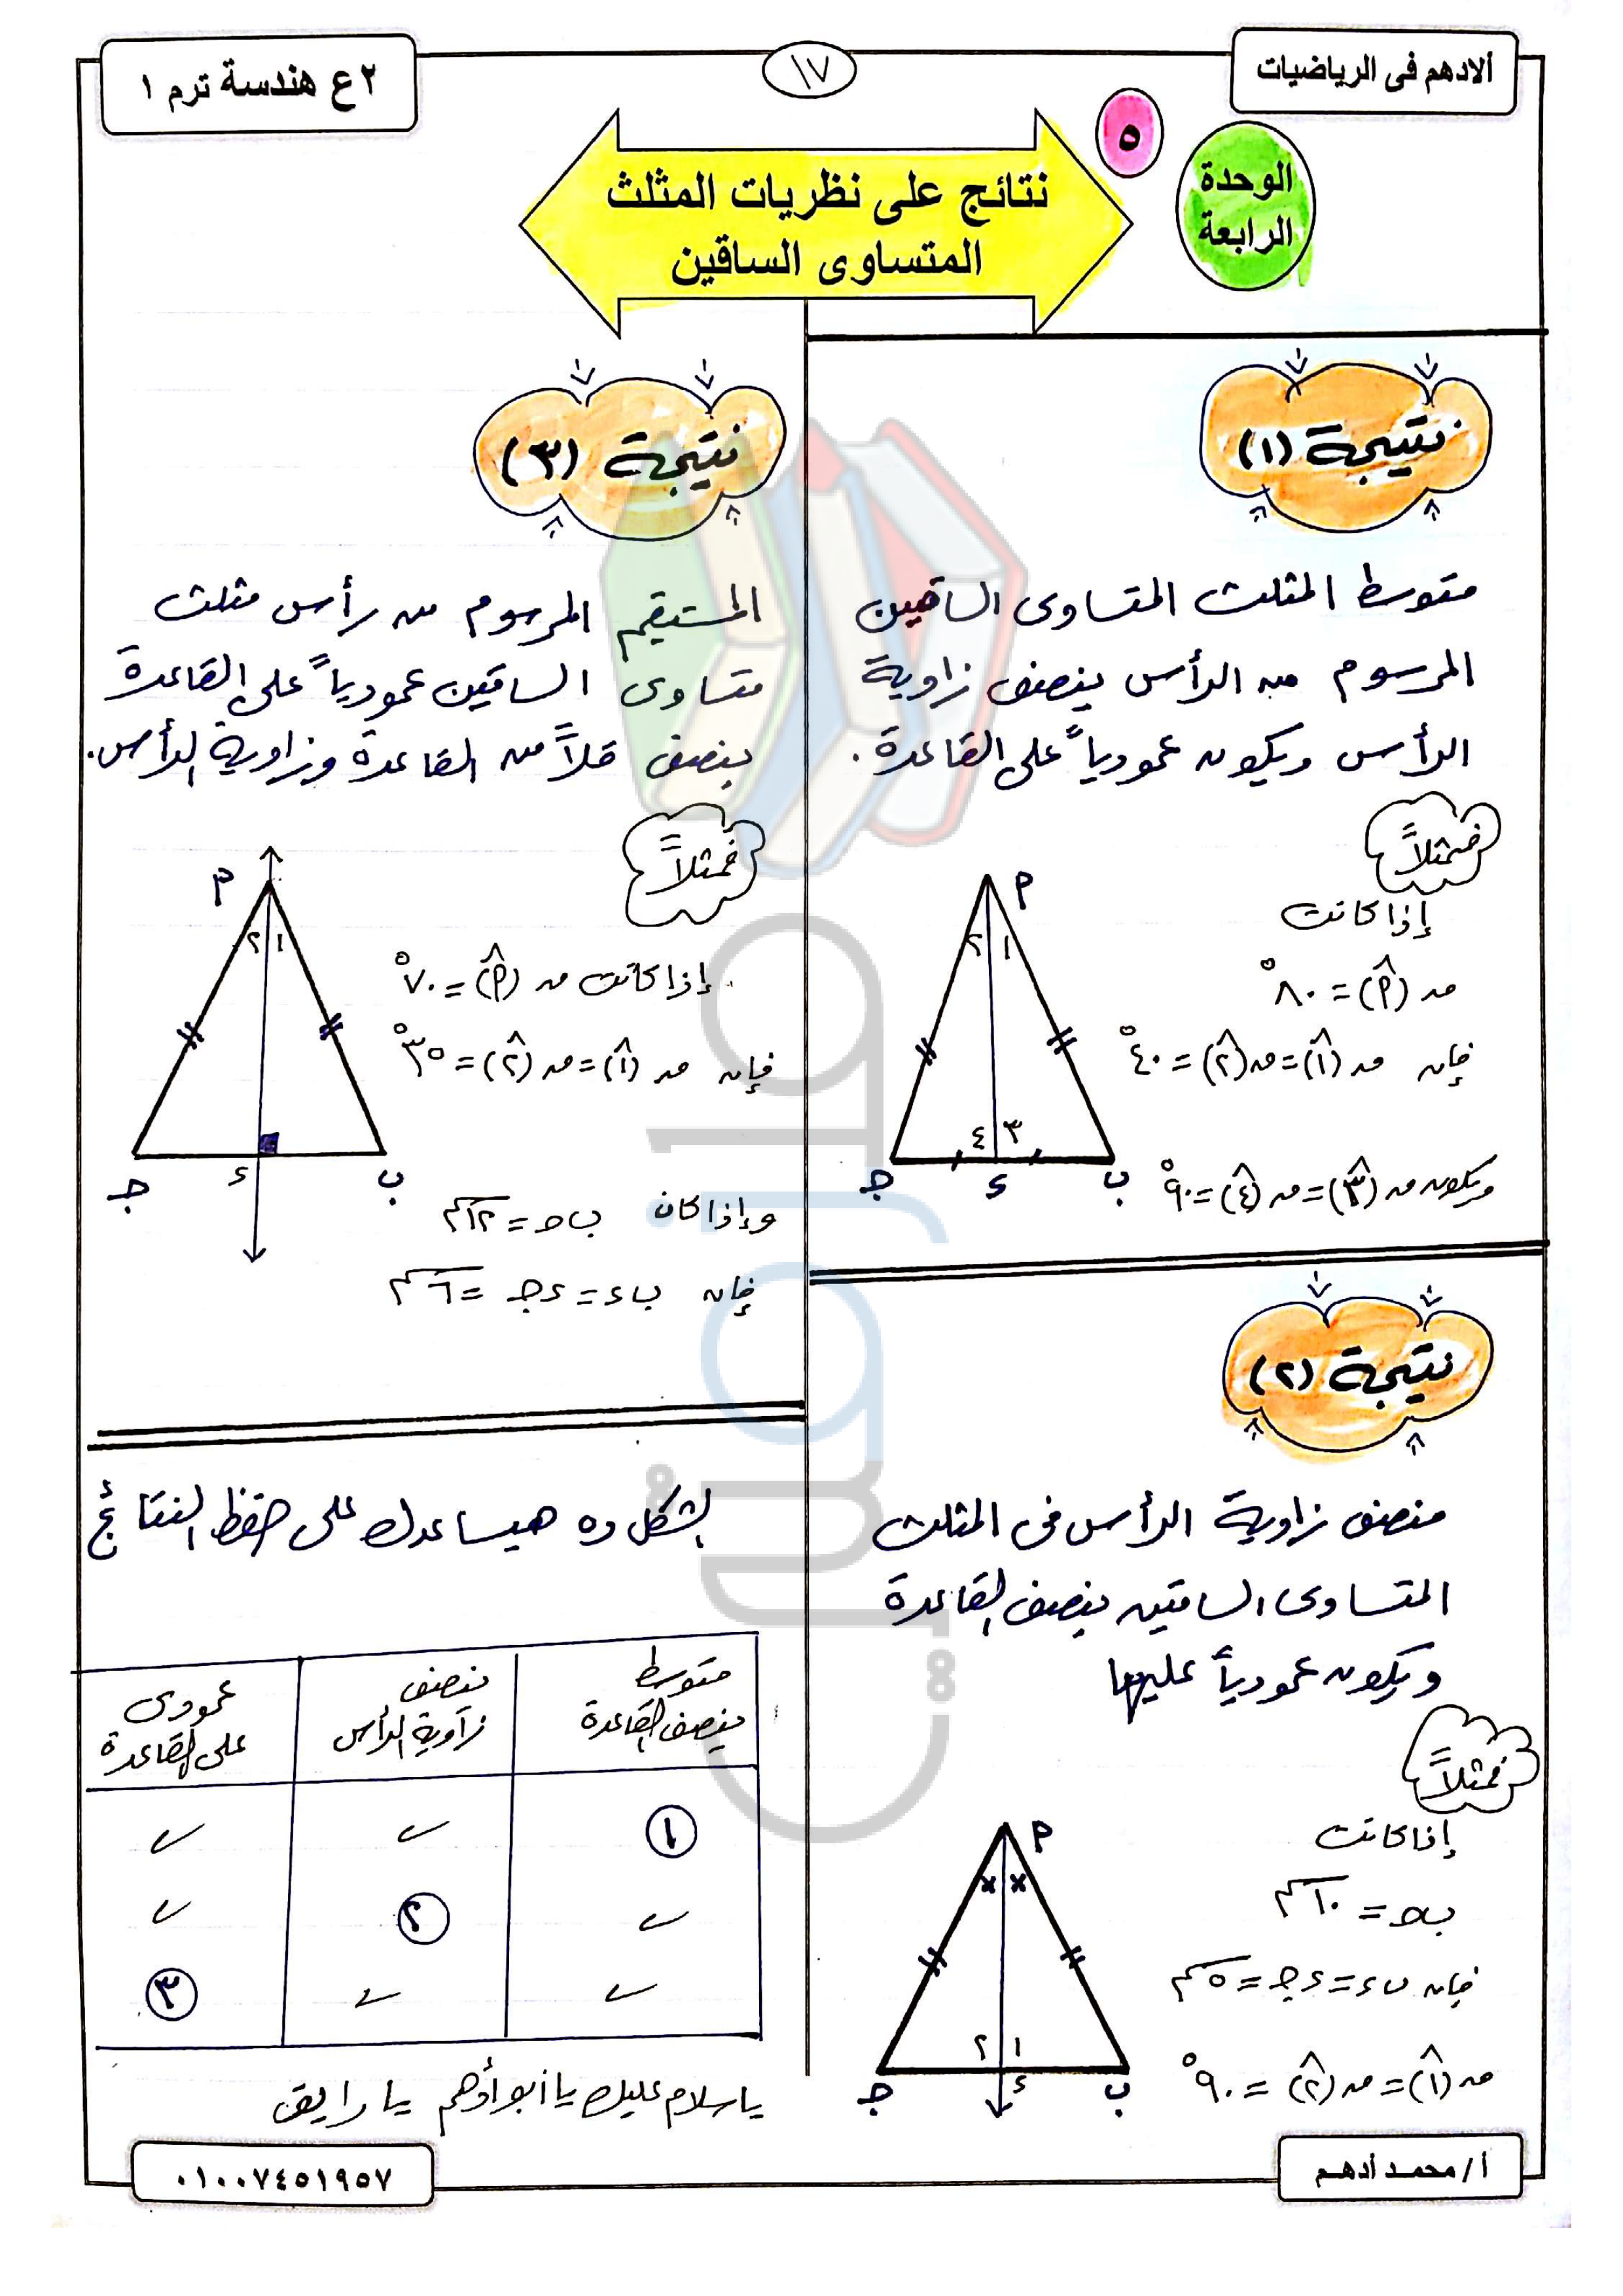 ألادهم فى الرياضيات
١٧
٢ع هندسة ترم ١
الوحدة
الرابعة
٥
نتائج على نظريات المثلث
المتساوى الساقين
نتيجة (١)
متوسط المثلث المتساوى الساقين
المرسوم من الرأس ينصف زاوية
الرأس ويكون عمودياً على القاعدة.
فمثلاً
إذا كانت
ق(أ̂) = ٨٠°
فإن ق(١̂) = ق(٢̂) = ٤٠°
ويكون ق(٣̂) = ق(٤̂) = ٩٠°
أ
١ ٢
٣ ٤
ب ء جـ
نتيجة (٢)
منصف زاوية الرأس فى المثلث
المتساوى الساقين ينصف القاعدة
ويكون عمودياً عليها
فمثلاً
إذا كانت
ب جـ = ١٠ سم
فإن ب ء = ء جـ = ٥ سم
ق(١̂) = ق(٢̂) = ٩٠°
أ
× ×
١ ٢
ب ء جـ
نتيجة (٣)
المستقيم المرسوم من رأس مثلث
متساوى الساقين عمودياً على القاعدة
ينصف كلاً من القاعدة وزاوية الرأس.
فمثلاً
إذا كانت ق(أ̂) = ٧٠°
فإن ق(١̂) = ق(٢̂) = ٣٥°
وإذا كان ب جـ = ١٢ سم
فإن ب ء = ء جـ = ٦ سم
أ
١ ٢
ب ء جـ
الشكل ده هيساعدك على حفظ النتائج
متوسط ينصف القاعدة | ينصف زاوية الرأس | عمودى على القاعدة
١ ✓ ✓
✓ ٢ ✓
✓ ✓ ٣
يا سلام عليك يا أبو أدهم يا رايق
أ/ محمد أدهم
٠١٠٠٧٤٥١٩٥٧